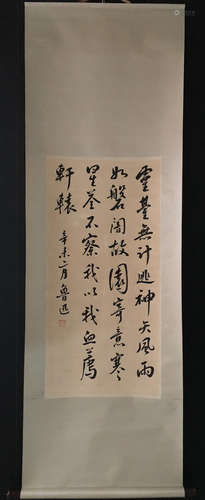 靈臺無計逃神矢風雨
如磐闇故園寄意寒
星荃不察我以我血薦
軒轅
辛未二月 魯迅